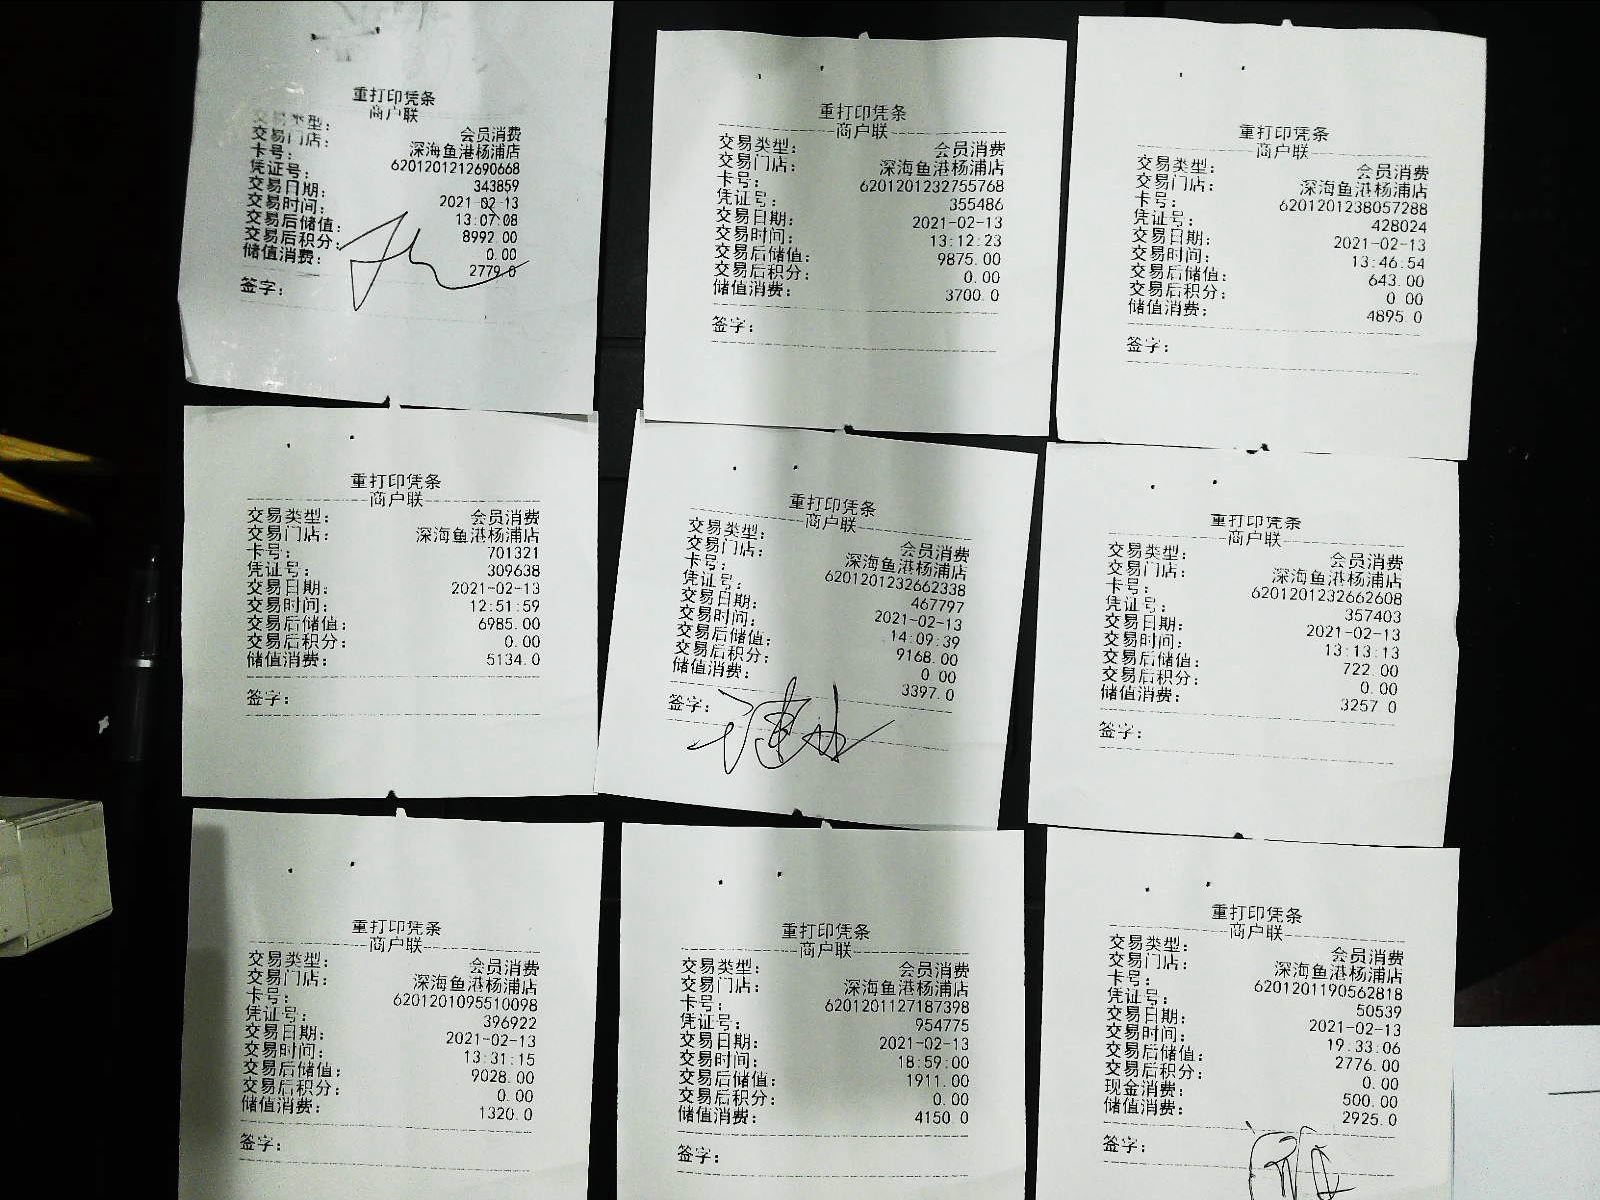 重打印凭条
商户联
交易类型: 会员消费
交易门店: 深海鱼港杨浦店
卡号: 6201201212690668
凭证号: 343859
交易日期: 2021-02-13
交易时间: 13:07:08
交易后储值: 8992.00
交易后积分: 0.00
储值消费: 2779.0
签字:
重打印凭条
商户联
交易类型: 会员消费
交易门店: 深海鱼港杨浦店
卡号: 6201201232755768
凭证号: 355486
交易日期: 2021-02-13
交易时间: 13:12:23
交易后储值: 9875.00
交易后积分: 0.00
储值消费: 3700.0
签字:
重打印凭条
商户联
交易类型: 会员消费
交易门店: 深海鱼港杨浦店
卡号: 6201201238057288
凭证号: 428024
交易日期: 2021-02-13
交易时间: 13:46:54
交易后储值: 643.00
交易后积分: 0.00
储值消费: 4895.0
签字:
重打印凭条
商户联
交易类型: 会员消费
交易门店: 深海鱼港杨浦店
卡号: 701321
凭证号: 309638
交易日期: 2021-02-13
交易时间: 12:51:59
交易后储值: 6985.00
交易后积分: 0.00
储值消费: 5134.0
签字:
重打印凭条
商户联
交易类型: 会员消费
交易门店: 深海鱼港杨浦店
卡号: 6201201232662338
凭证号: 467797
交易日期: 2021-02-13
交易时间: 14:09:39
交易后储值: 9168.00
交易后积分: 0.00
储值消费: 3397.0
签字:
重打印凭条
商户联
交易类型: 会员消费
交易门店: 深海鱼港杨浦店
卡号: 6201201232662608
凭证号: 357403
交易日期: 2021-02-13
交易时间: 13:13:13
交易后储值: 722.00
交易后积分: 0.00
储值消费: 3257.0
签字:
重打印凭条
商户联
交易类型: 会员消费
交易门店: 深海鱼港杨浦店
卡号: 6201201095510098
凭证号: 396922
交易日期: 2021-02-13
交易时间: 13:31:15
交易后储值: 9028.00
交易后积分: 0.00
储值消费: 1320.0
签字:
重打印凭条
商户联
交易类型: 会员消费
交易门店: 深海鱼港杨浦店
卡号: 6201201127187398
凭证号: 954775
交易日期: 2021-02-13
交易时间: 18:59:00
交易后储值: 1911.00
交易后积分: 0.00
储值消费: 4150.0
签字:
重打印凭条
商户联
交易类型: 会员消费
交易门店: 深海鱼港杨浦店
卡号: 6201201190562818
凭证号: 50539
交易日期: 2021-02-13
交易时间: 19:33:06
交易后储值: 2776.00
交易后积分: 0.00
现金消费: 500.00
储值消费: 2925.0
签字: